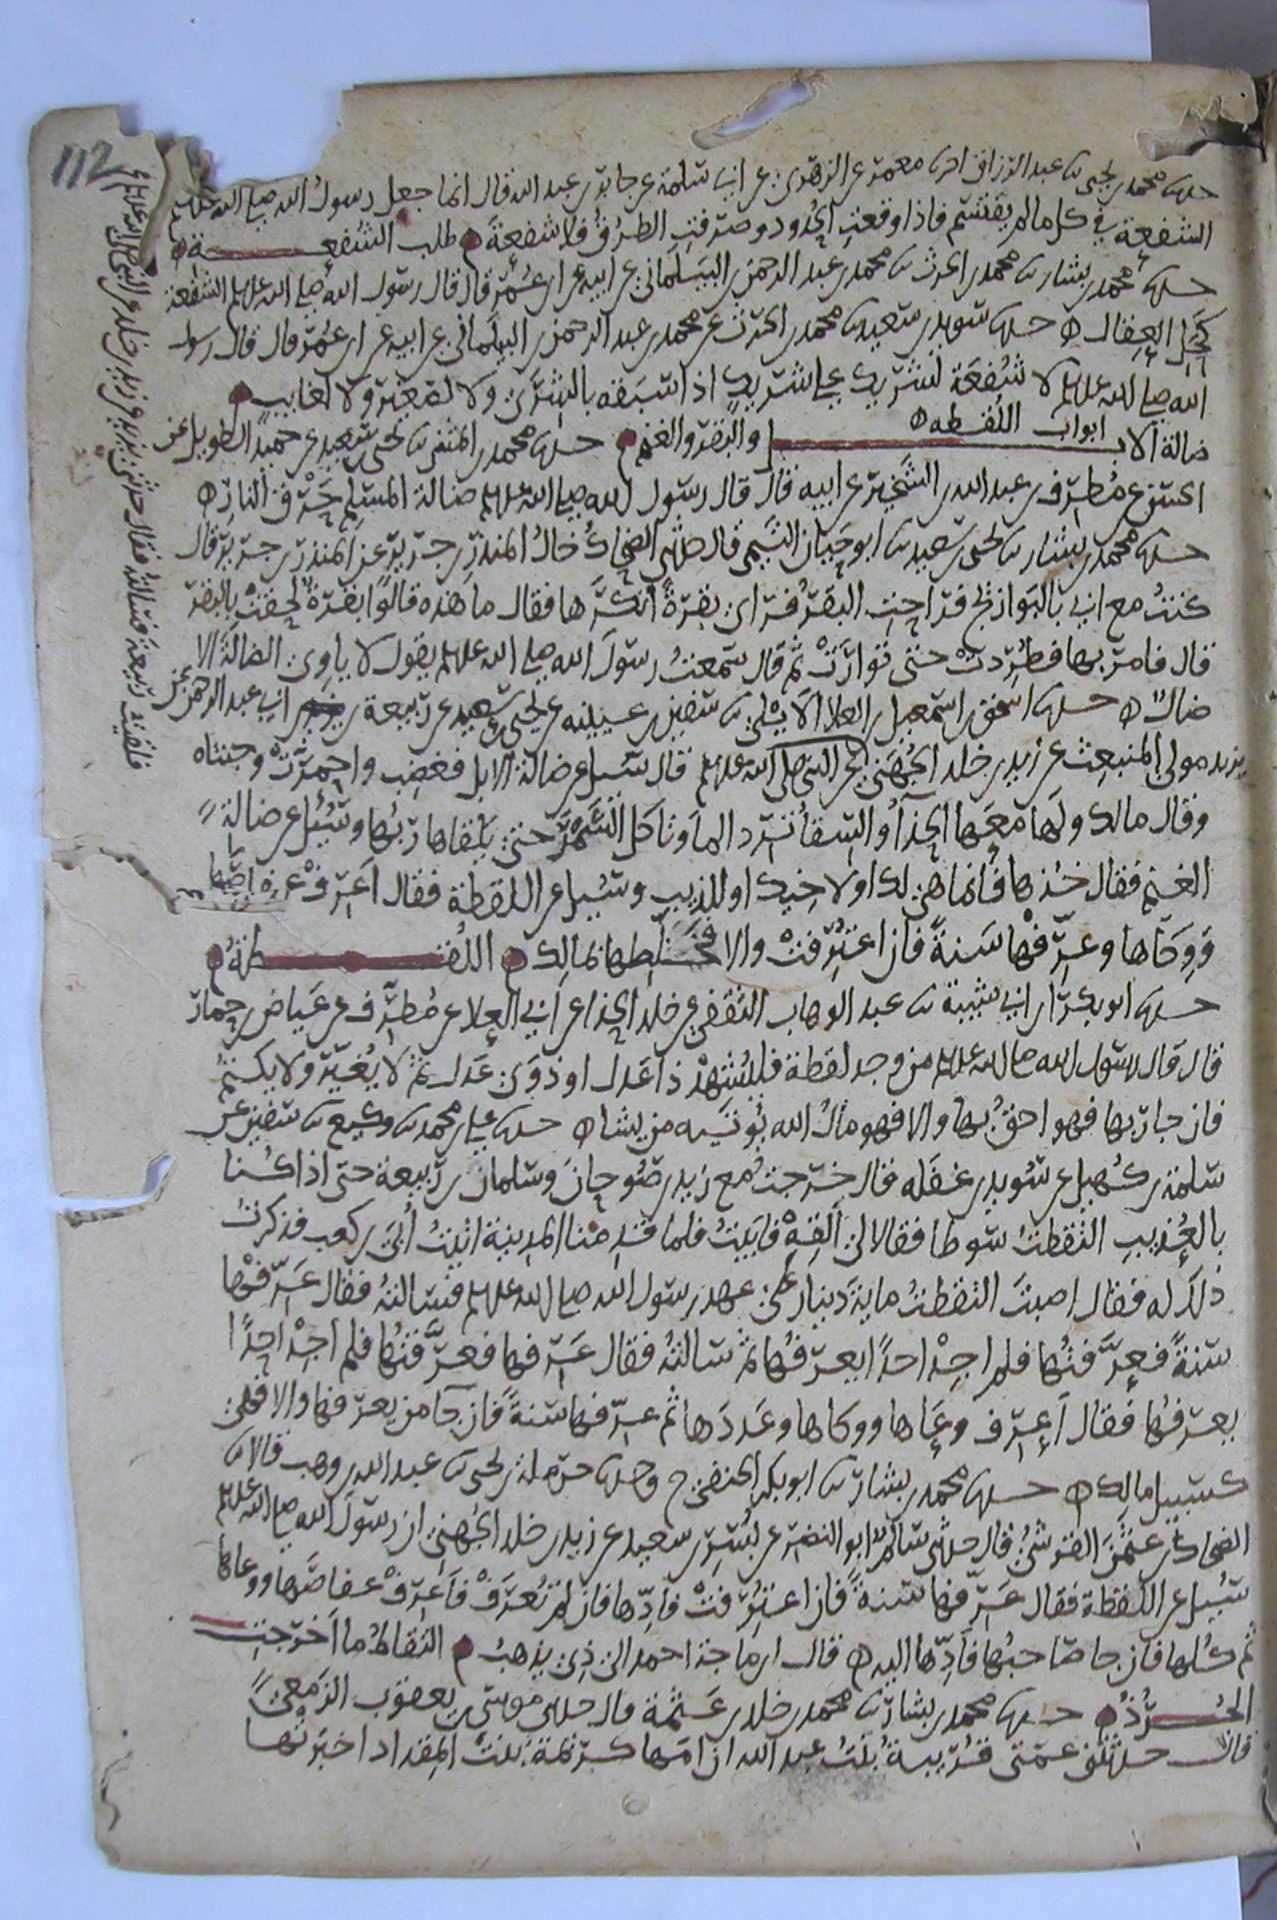 حدثنا محمد بن يحيى ثنا عبد الرزاق اخبرنا معمر عن الزهري عن ابي سلمة عن جابر بن عبد الله قال انما جعل رسول الله صلى الله عليه وسلم
الشفعة في كل ما لم يقتسم فاذا وقعت الحدود وصرفت الطرق فلا شفعة طلب الشفعة
حدثنا محمد بن بشار ثنا محمد بن الحرث ثنا محمد بن عبد الرحمن بن البيلماني عن ابيه عن ابن عمر قال قال رسول الله صلى الله عليه وسلم الشفعة
كحل العقال حدثنا سويد بن سعيد ثنا محمد بن الحرث عن محمد بن عبد الرحمن بن البيلماني عن ابيه عن ابن عمر قال قال رسول
الله صلى الله عليه وسلم لا شفعة لشريك على شريك اذا سبقه بالشرى ولا لصغير ولا لغايب
ابواب اللقطة
ضالة الابل والبقر والغنم حدثنا محمد بن المثنى ثنا يحيى بن سعيد عن حميد الطويل عن
الحسن عن مطرف بن عبد الله بن الشخير عن ابيه قال قال رسول الله صلى الله عليه وسلم ضالة المسلم حرق النار
حدثنا محمد بن بشار ثنا يحيى بن سعيد ثنا ابو حيان التيمي قال حدثني الضحاك خال المنذر بن جرير عن المنذر بن جرير قال
كنت مع ابي بالبوازيج فراحت البقر فراى بقرة انكرها فقال ما هذه قالوا بقرة لحقت بالبقر
قال فامر بها فطردت حتى توارت ثم قال سمعت رسول الله صلى الله عليه وسلم يقول لا ياوي الضالة الا
ضال حدثنا اسحق بن اسمعيل بن العلا الايلي ثنا سفين بن عيينه عن يحيى بن سعيد عن ربيعة بن ابي عبد الرحمن عن
يزيد مولى المنبعث عن زيد بن خلد الجهني عن النبي صلى الله عليه وسلم قال سئل عن ضالة الابل فغضب واحمرت وجنتاه
وقال مالك ولها معها الحذاء والسقا ترد الما وتاكل الشجر حتى يلقاها ربها وسئل عن ضالة
الغنم فقال خذها فانما هي لك او لاخيك او للذيب وسئل عن اللقطة فقال اعرف عفاصها
ووكاها وعرفها سنة فان اعترفت والا فخلطها بمالك اللقطة
حدثنا ابو بكر بن ابي شيبة ثنا عبد الوهاب الثقفي عن خلد الحذا عن ابي العلا عن مطرف عن عياض بن حمار
قال قال رسول الله صلى الله عليه وسلم من وجد لقطة فليشهد ذا عدل او ذوى عدل ثم لا يغير ولا يكتم
فان جا ربها فهو احق بها والا فهو مال الله يوتيه من يشا حدثنا علي بن محمد ثنا وكيع ثنا سفين عن
سلمة بن كهيل عن سويد بن غفله قال خرجت مع زيد بن صوحان وسلمان بن ربيعة حتى اذا كنا
بالعذيب التقطت سوطا فقالا لي القه فابيت فلما قدمنا المدينة اتيت ابي بن كعب فذكرت
ذلك له فقال اصبت التقطت ماية دينار على عهد رسول الله صلى الله عليه وسلم فسالته فقال عرفها
سنة فعرفتها فلم اجد احدا يعرفها ثم سالته فقال عرفها فعرفتها فلم اجد احدا
يعرفها فقال اعرف وعاها ووكاها وعددها ثم عرفها سنة فان جا من يعرفها والا فهي
كسبيل مالك حدثنا محمد بن بشار ثنا ابو بكر الحنفي ح وحدثنا حرملة بن يحيى ثنا عبد الله بن وهب قالا ثنا
الضحاك بن عثمن القرشي قال حدثني سالم ابو النضر عن بسر بن سعيد عن زيد بن خلد الجهني ان رسول الله صلى الله عليه وسلم
سئل عن اللقطة فقال عرفها سنة فان اعترفت فادها فان لم تعرف فاعرف عفاصها ووعاها
ثم كلها فان جا صاحبها فادها اليه قال ابن ماجة احمد الى ذي يذهب التقاط ما اخرجت
الجرذ حدثنا محمد بن بشار ثنا محمد بن خلد بن عثمة قال حدثني موسى بن يعقوب الزمعي
قال حدثتني عمتي قريبة بنت عبد الله ان امها كريمة بنت المقداد اخبرتها
فلقيت ربيعة فسالته فقال حدثني يزيد عن زيد بن خلد عن النبي صلى الله عليه وسلم
112